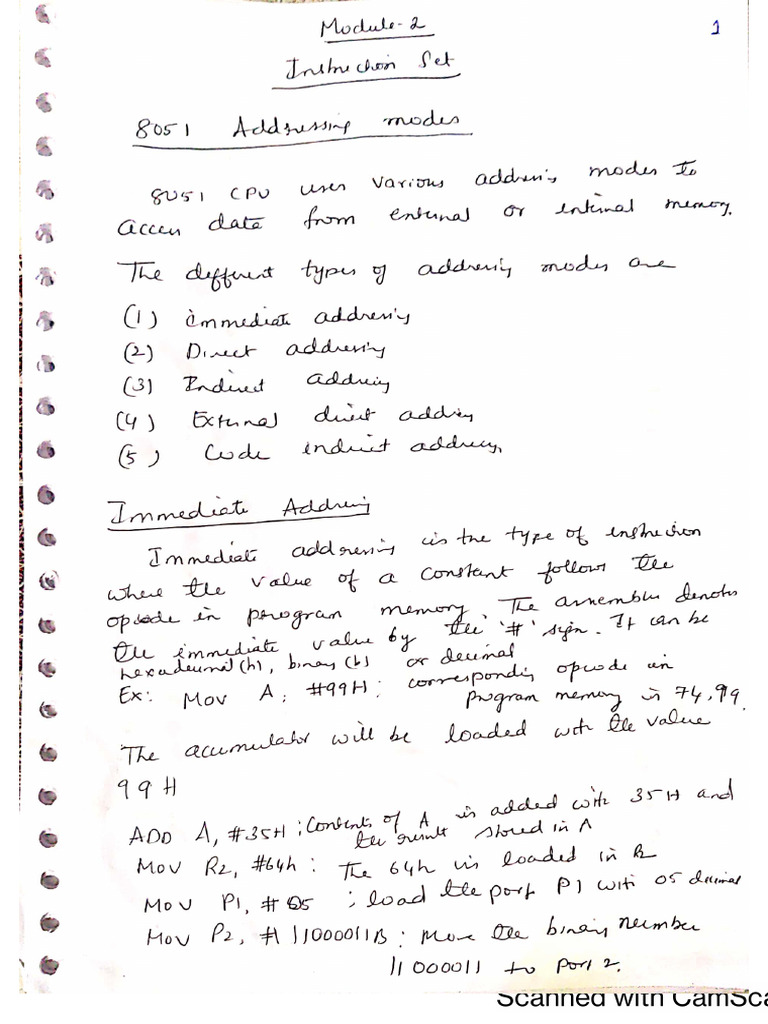 Module-2
1
Instruction Set
8051 Addressing modes
8051 CPU uses various addressing modes to
access data from external or internal memory.
The different types of addressing modes are
(1) immediate addressing
(2) Direct addressing
(3) Indirect addressing
(4) External direct addressing
(5) Code indirect addressing
Immediate Addressing
Immediate addressing is the type of instruction
where the value of a constant follow the
opcode in program memory. The assembler denotes
the immediate value by the '#' sign. It can be
hexadecimal(h), binary(b) or decimal
Ex: Mov A, #99H; corresponding opcode in
program memory is 74,99.
The accumulator will be loaded with the value
99H
ADD A, #35H ; Contents of A is added with 35H and
the result stored in A
Mov R2, #64h : The 64h is loaded in R2
Mov P1, #05 ; load the port P1 with 05 decimal
Mov P2, #11000011B : Move the binary number
11000011 to port 2.
Scanned with CamSca